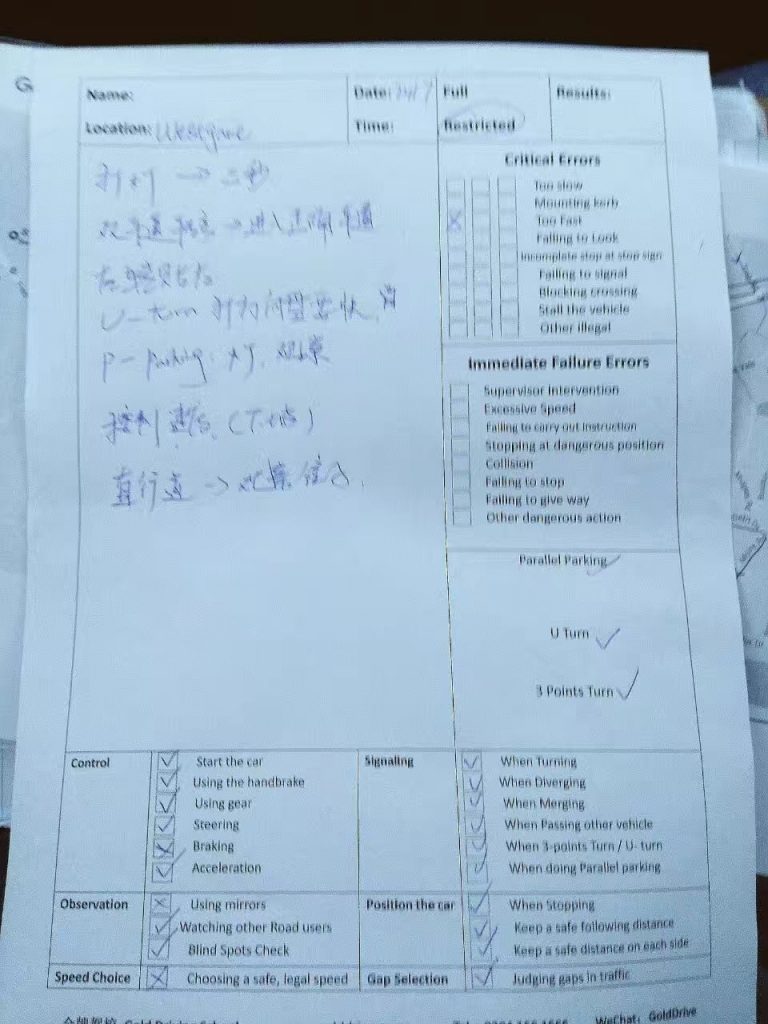 G
Name:
Date: 24/7
Full
Results:
Location: Westgate
Time:
Restricted
打灯 → 三秒
Critical Errors
Too slow
Mounting kerb
Too Fast
Failing to Look
Incomplete stop at stop sign
Failing to signal
Blocking crossing
Stall the vehicle
Other illegal
双车道 → 进入 车道
U-turn 打方向盘要快
P-parking: 灯, 观察
控制 速度
直行 → 观察
Immediate Failure Errors
Supervisor Intervention
Excessive Speed
Failing to carry out instruction
Stopping at dangerous position
Collision
Failing to stop
Failing to give way
Other dangerous action
Parallel Parking
U Turn
3 Points Turn
Control
Start the car
Using the handbrake
Using gear
Steering
Braking
Acceleration
Signaling
When Turning
When Diverging
When Merging
When Passing other vehicle
When 3-points Turn / U- turn
When doing Parallel parking
Observation
Using mirrors
Watching other Road users
Blind Spots Check
Position the car
When Stopping
Keep a safe following distance
Keep a safe distance on each side
Speed Choice
Choosing a safe, legal speed
Gap Selection
Judging gaps in traffic
WeChat: GoldDrive